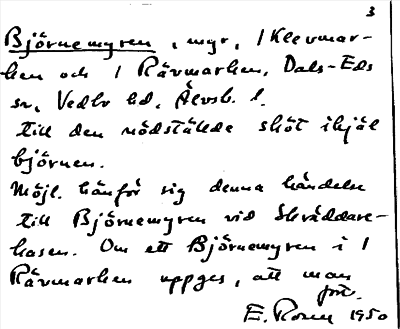 3
Björnemyren, myr, 1 Klevmar-
ken och 1 Rävmarken, Dals-Eds
sn, Vedbo hd, Älvsb. l.
till den nödställde sköt ihjäl
björnen.
Möjl. hänför sig denna händelse
till Björnemyren vid Skräddare-
hasen. Om ett Björnemyren i 1
Rävmarken uppges, att man
forts.
E. Rosen 1950